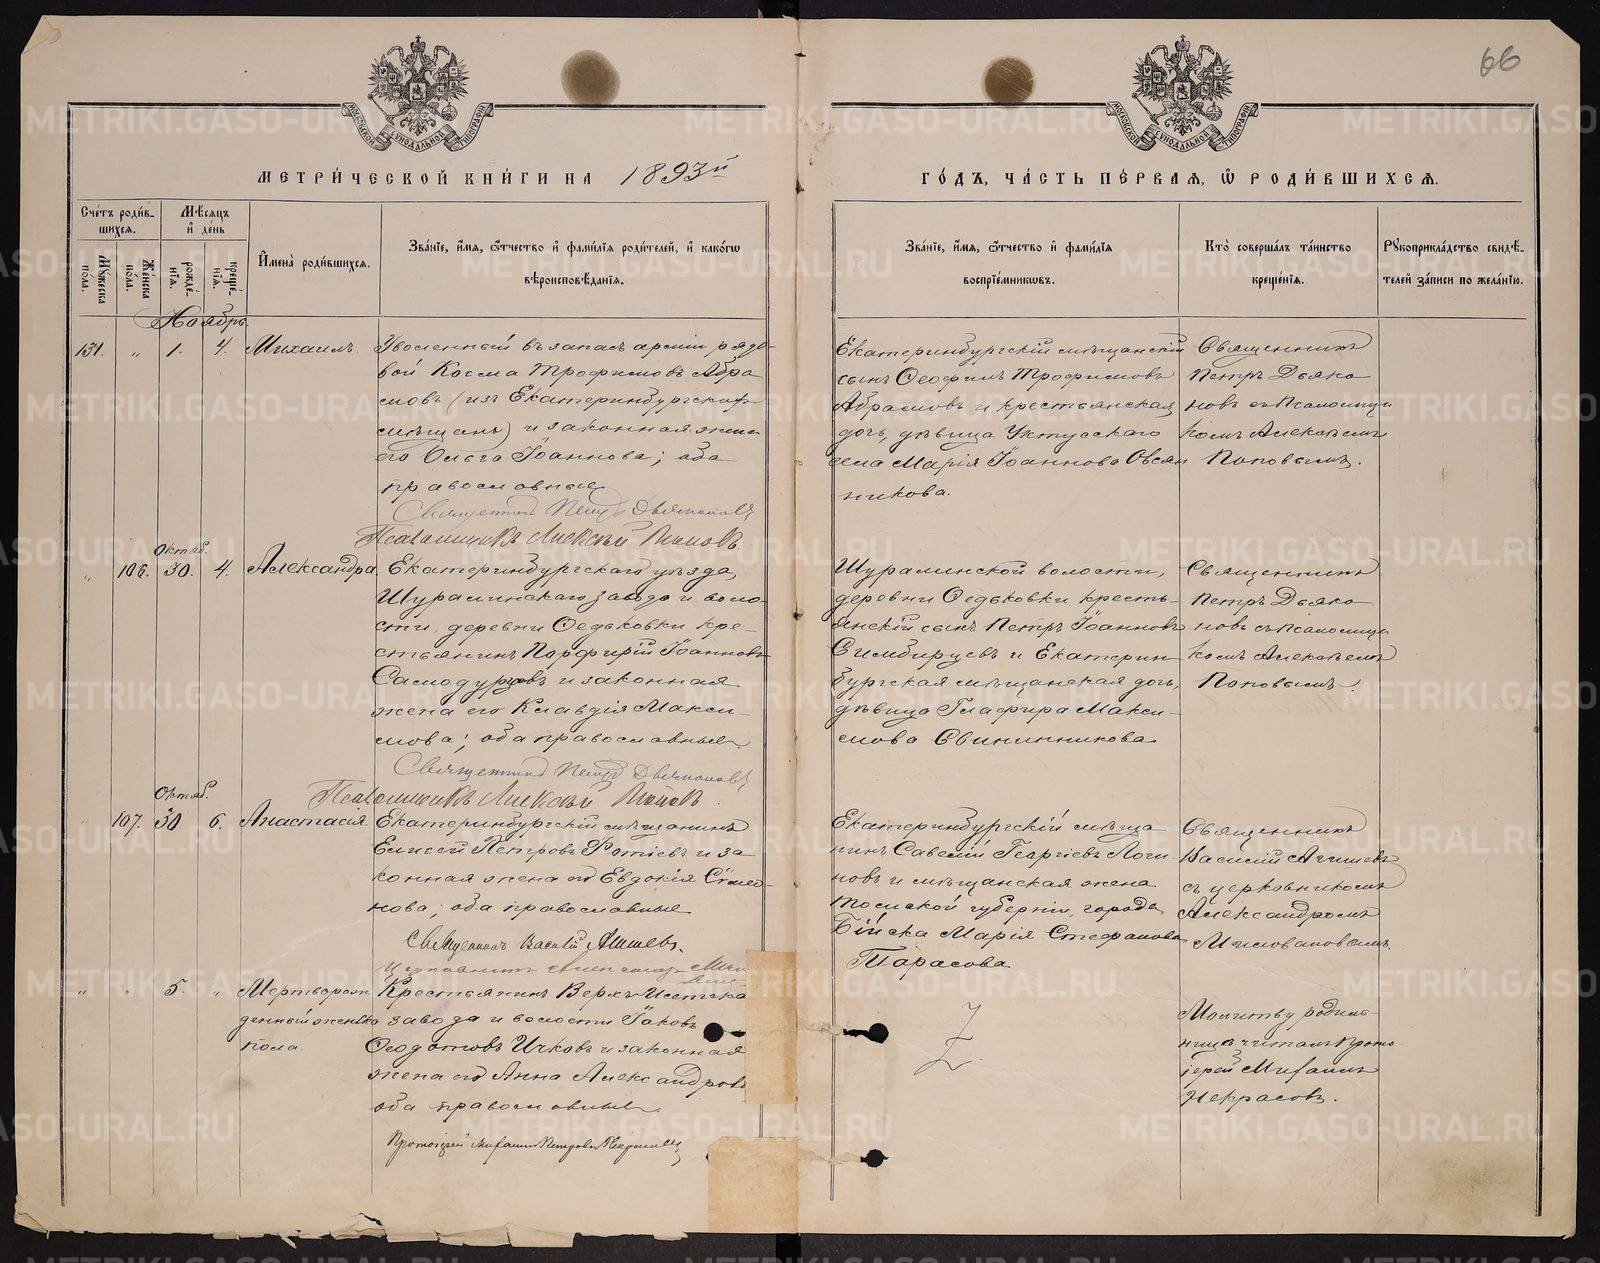 66
МЕТРИ́ЧЕСКОЙ КНИ́ГИ НА 1893й
ГО́ДЪ, ЧА́СТЬ ПЕ́РВАЯ, Ѡ РОДИ́ВШИХСѦ.
Сче́тъ роди́в-
шихсѧ.
Мꙋжеска по́ла.
Же́нска по́ла.
Мѣ́сѧцъ
и҆ де́нь
рожде́-
нїѧ.
креще́-
нїѧ.
И҆мена̀ роди́вшихсѧ.
Зва́нїе, и҆́мѧ, ѻ҆́тчество и҆ фами́лїѧ роди́телей, и҆ како́гѡ
вѣроисповѣ́данїѧ.
Зва́нїе, и҆́мѧ, ѻ҆́тчество и҆ фами́лїѧ
воспрїе́мникѡвъ.
Кто̀ соверша́лъ та́инство
креще́нїѧ.
Рꙋкоприкла́дство свидѣ́-
телей за́писи по жела́нїю.
Ноябрь
131. „ 1. 4. Михаилъ.
Уволенный въ запасъ армiи рядо-
вой Косма Трофимовъ Абра
мовъ (изъ Екатеринбургскихъ
мѣщанъ) и законная жена
его Ольга Iоаннова; оба
православные
Священникъ Петръ Дьяконовъ
Псаломщикъ Алексѣй Поповъ.
Екатеринбургскiй мѣщанскiй
сынъ Ѳеофилъ Трофимовъ
Абрамовъ и крестьянская
дочь, дѣвица Уктусскаго
села Марiя Iоаннова Овсян
никова.
Священникъ
Петръ Дьяко
новъ съ Псаломщи
комъ Алексѣемъ
Поповымъ.
„ 106. Октяб. 30. 4. Александра
Екатеринбургскаго уѣзда,
Шуралинскаго завода и воло-
сти, деревни Ѳедьковки кре-
стьянинъ Порфирiй Iоанновъ
Самодуровъ и законная
жена его Клавдiя Макси-
мова; оба православные
Священникъ Петръ Дьяконовъ
Псаломщикъ Алексѣй Поповъ.
Шуралинской волости,
деревни Ѳедьковки кресть-
янскiй сынъ Петръ Iоанновъ
Симбирцевъ и Екатерин-
бургская мѣщанская дочь,
дѣвица Глафира Макси-
мова Свининникова
Священникъ
Петръ Дьяко
новъ съ Псаломщи
комъ Алексѣемъ
Поповымъ.
107. Октяб. 30 6. Анастасiя.
Екатеринбургскiй мѣщанинъ
Елисей Петровъ Фотiевъ и за
конная жена его Евдокiя Сiмео-
нова; оба православные
Священникъ Василiй
Екатеринбургскiй мѣща
нинъ Савелiй Георгiевъ Логи
новъ и мѣщанская жена
Томской губернiи, города
Бiйска Марiя Стефанова
Тарасова
Священникъ
Василiй
съ церковникомъ
Александромъ
Миловановымъ.
„ „ 5. „ Мертворож
денный женско
пола.
Крестьянинъ Верхъ-Исетска
завода и волости Iаковъ
Ѳеодотовъ Ичковъ и законная
жена его Анна Александрова
оба православные.
Протоiерей Михаилъ Петровъ Некрасовъ
Z.
Молитву родиль-
ницѣ читалъ прото
iерей Михаилъ
Некрасовъ.